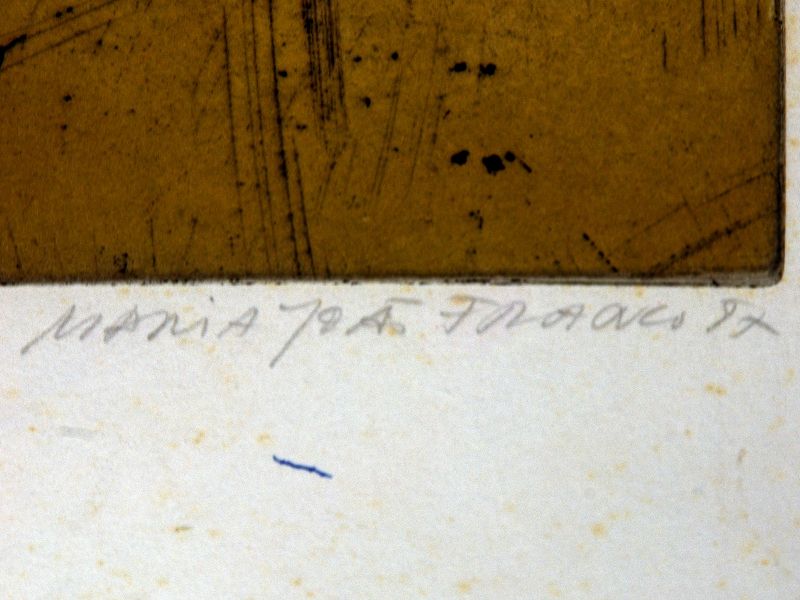 MARIA JOÃO FRANCO